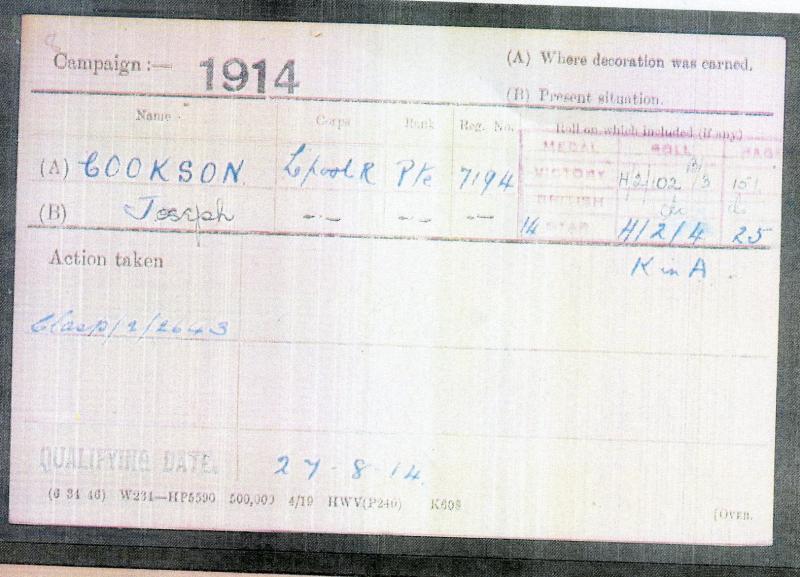 Campaign :— 1914 (A) Where decoration was earned.
(B) Present situation.
Name Corps Rank Reg. No. Roll on which included (if any)
MEDAL ROLL PAGE
(A) COOKSON L'pool R Pte 7194 VICTORY H/2/102 B/3 151
(B) Joseph -·- -·- -·- BRITISH do do
14 STAR H/2/4 25
Action taken K in A.
Clasp/2/2643
QUALIFYING DATE. 27-8-14.
(6 34 46) W234—HP5590 500,000 4/19 HWV(P240) K608
[OVER.